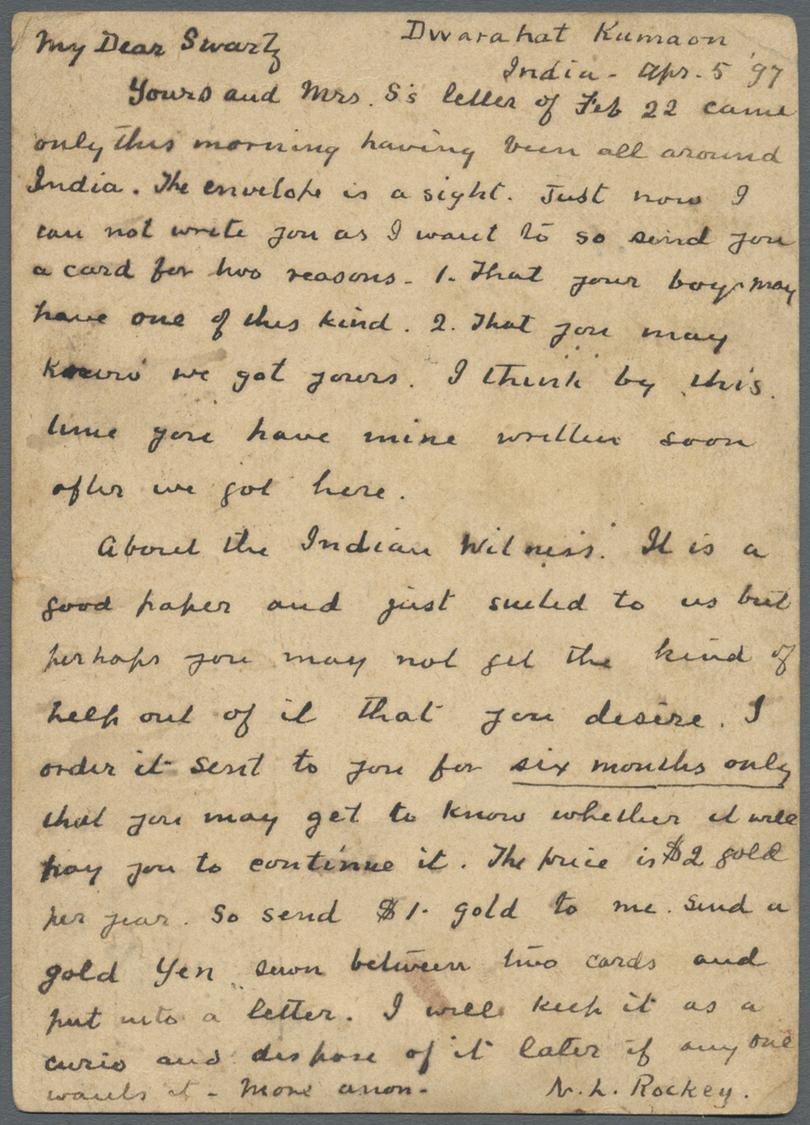 Dwarahat Kumaon
My Dear Swartz
India - Apr. 5 '97
Yours and Mrs. S's letter of Feb 22 came
only this morning having been all around
India. The envelope is a sight. Just now I
can not write you as I want to so send you
a card for two reasons - 1. That your boys may
have one of this kind. 2. That you may
know we got yours. I think by this
time you have mine written soon
after we got here.
About the Indian Witness. It is a
good paper and just suited to us but
perhaps you may not get the kind of
help out of it that you desire. I
order it sent to you for six months only
that you may get to know whether it will
pay you to continue it. The price is $2 gold
per year. So send $1. gold to me. Send a
gold Yen sewn between two cards and
put into a letter. I will keep it as a
curio and dispose of it later if any one
wants it - More anon -
N. L. Rockey.